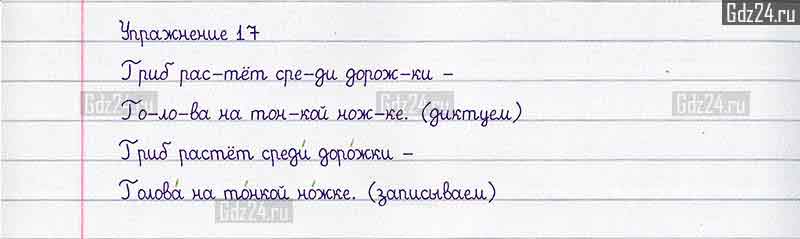 Gdz24.ru
Упражнение 17
Гриб рас-тёт сре-ди дорож-ки -
Gdz24.ru Gdz24.ru Gdz24.ru
Го-ло-ва на тон-кой нож-ке. (диктуем)
Гриб растёт среди́ доро́жки -
Голова́ на то́нкой но́жке. (записываем)
Gdz24.ru